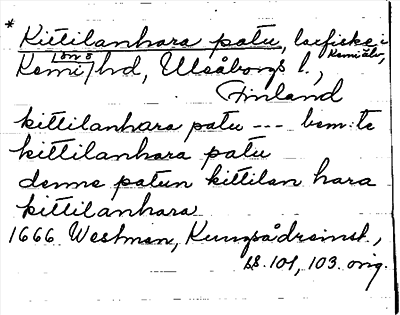 * Kittilanhara patu, laxfiske i
Kemi /: on 8 hd, Uleåborgs l., Kemi älv,
Finland
kittilanhara patu --- bem:te
kittilanhara patu
denne patun kittilan hara
kittilanhara
1666 Westman, Kungsådreinst.,
ss. 101, 103. orig.